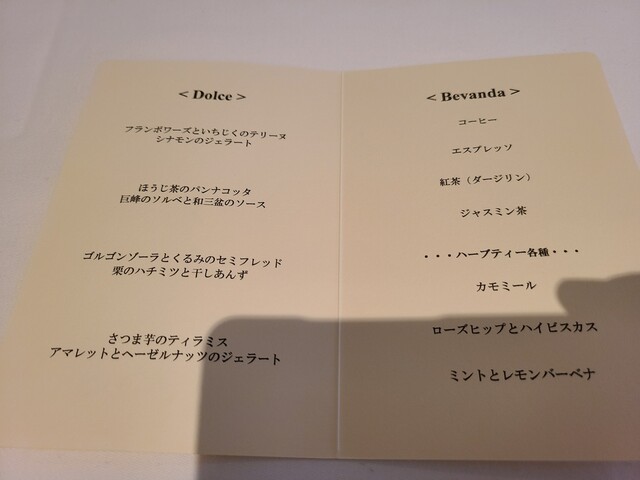 < Dolce >
フランボワーズといちじくのテリーヌ
シナモンのジェラート
ほうじ茶のパンナコッタ
巨峰のソルベと和三盆のソース
ゴルゴンゾーラとくるみのセミフレッド
栗のハチミツと干しあんず
さつま芋のティラミス
アマレットとヘーゼルナッツのジェラート
< Bevanda >
コーヒー
エスプレッソ
紅茶（ダージリン）
ジャスミン茶
・・・ハーブティー各種・・・
カモミール
ローズヒップとハイビスカス
ミントとレモンバーベナ